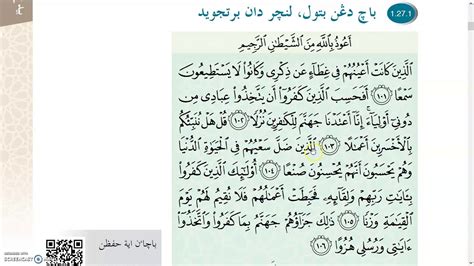 1.27.1
باچ دڠن بتول، لنچر دان برتجويد
أَعُوذُ بِاللَّهِ مِنَ الشَّيْطَانِ الرَّجِيمِ
الَّذِينَ كَانَتْ أَعْيُنُهُمْ فِي غِطَاءٍ عَن ذِكْرِي وَكَانُوا لَا يَسْتَطِيعُونَ
سَمْعًا ۝١٠١ أَفَحَسِبَ الَّذِينَ كَفَرُوا أَن يَتَّخِذُوا عِبَادِي مِن
دُونِي أَوْلِيَاءَ ۚ إِنَّا أَعْتَدْنَا جَهَنَّمَ لِلْكَافِرِينَ نُزُلًا ۝١٠٢ قُلْ هَلْ نُنَبِّئُكُم
بِالْأَخْسَرِينَ أَعْمَالًا ۝١٠٣ الَّذِينَ ضَلَّ سَعْيُهُمْ فِي الْحَيَوٰةِ الدُّنْيَا
وَهُمْ يَحْسَبُونَ أَنَّهُمْ يُحْسِنُونَ صُنْعًا ۝١٠٤ أُولَٰئِكَ الَّذِينَ كَفَرُوا
بِآيَاتِ رَبِّهِمْ وَلِقَائِهِ فَحَبِطَتْ أَعْمَالُهُمْ فَلَا نُقِيمُ لَهُمْ يَوْمَ
الْقِيَامَةِ وَزْنًا ۝١٠٥ ذَٰلِكَ جَزَاؤُهُمْ جَهَنَّمُ بِمَا كَفَرُوا وَاتَّخَذُوا
آيَاتِي وَرُسُلِي هُزُوًا ۝١٠٦
باچاٴن اية حفظن
SCREENCAST